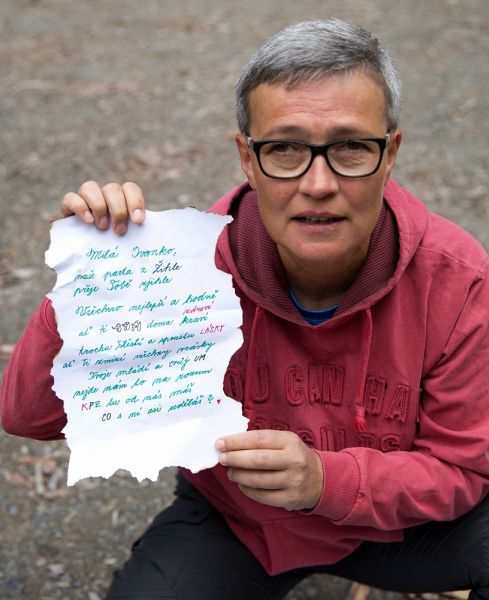 Milá Ivanko,
naše parta z Žihle
přeje Tobě rýchle
Všechno nejlepší a hodně
zdraví
ať ti doma kraví
trochu štěstí a spoustu LÁSKY
ať Ti zmizí všechny vrásky
Tvoje mládí a svěj UM
nejde nám to na rozum
KPZ tu od nás máš
CO s ní asi uděláš?
YOU CAN HA